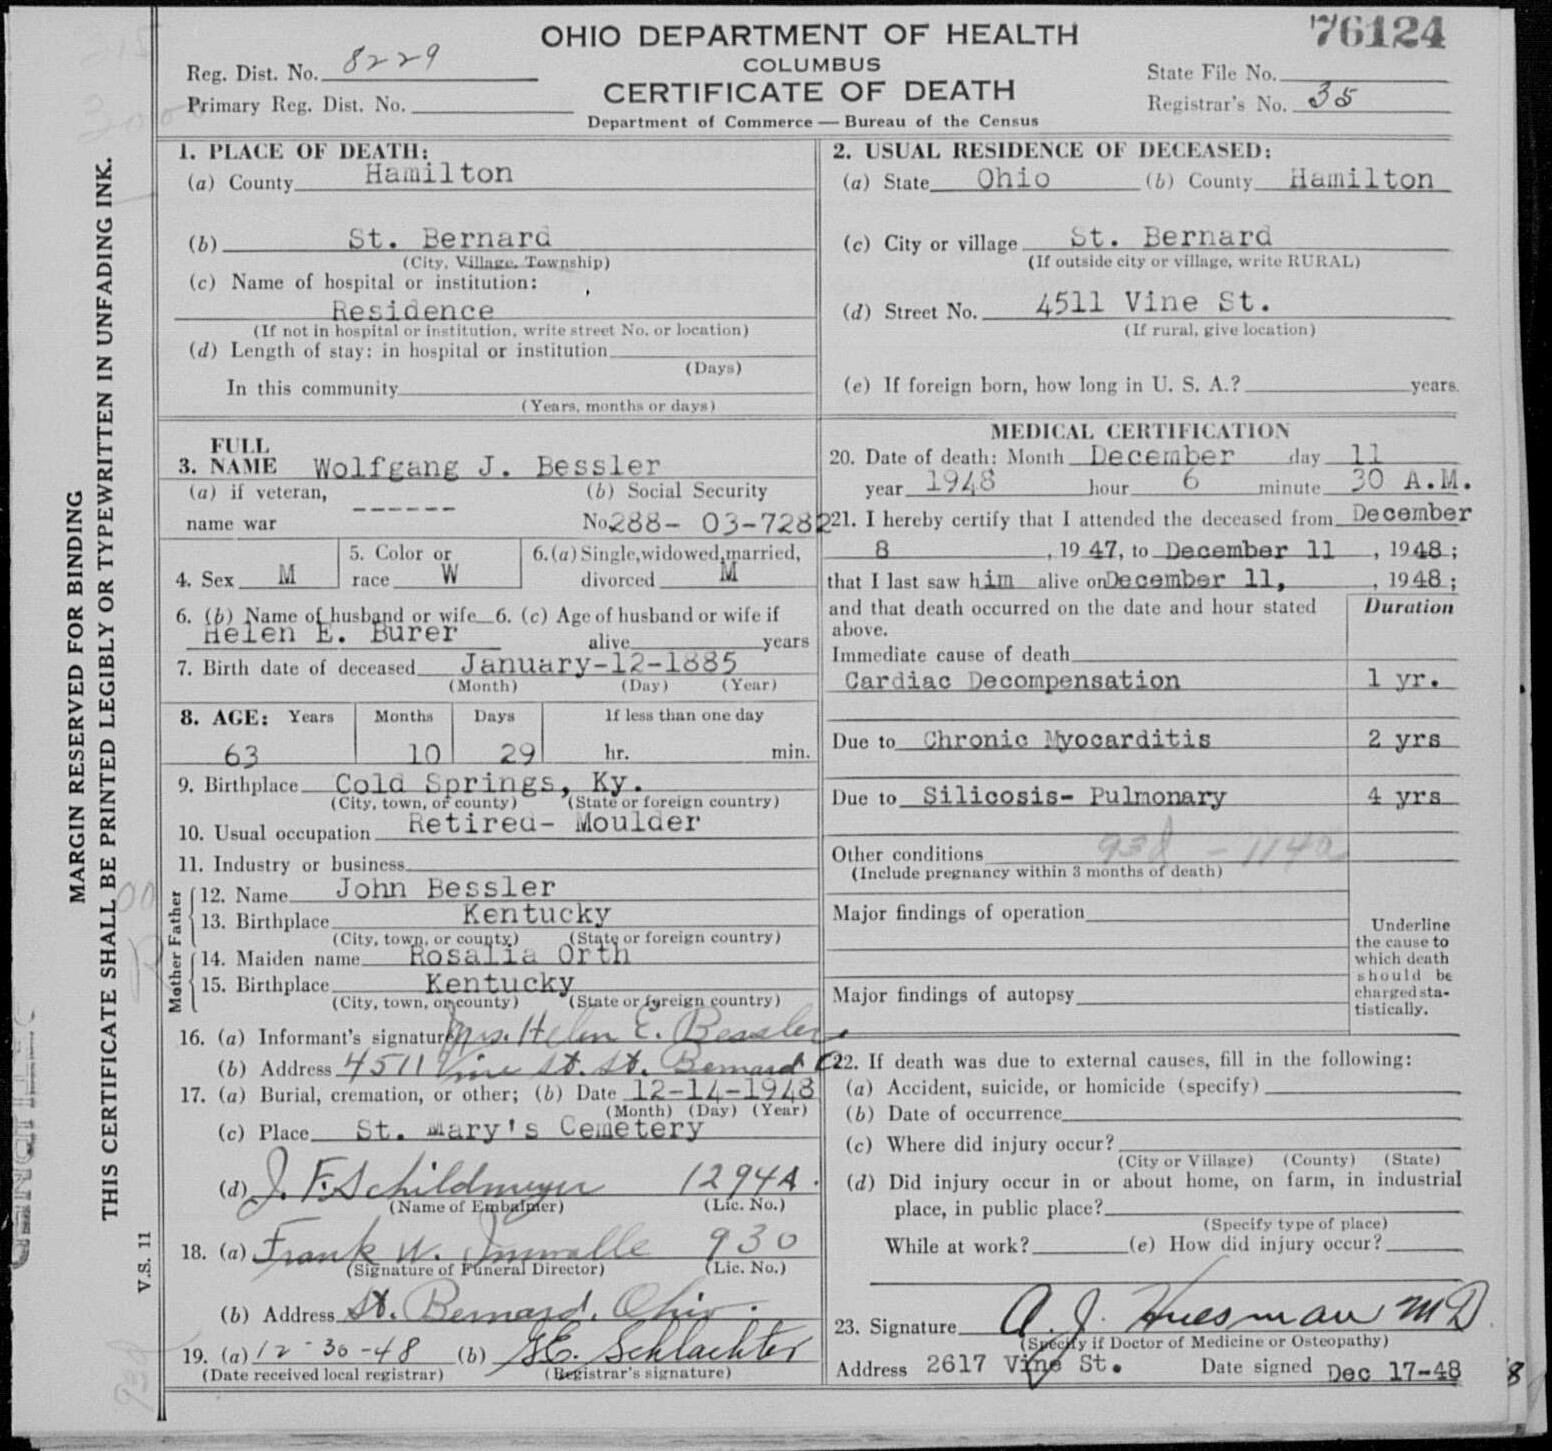 76124
OHIO DEPARTMENT OF HEALTH
COLUMBUS
CERTIFICATE OF DEATH
Department of Commerce — Bureau of the Census
Reg. Dist. No. 8229
Primary Reg. Dist. No.
State File No.
Registrar's No. 35
MARGIN RESERVED FOR BINDING
THIS CERTIFICATE SHALL BE PRINTED LEGIBLY OR TYPEWRITTEN IN UNFADING INK.
V.S. 11
1. PLACE OF DEATH:
(a) County Hamilton
(b) St. Bernard
(City, Village, Township)
(c) Name of hospital or institution:
Residence
(If not in hospital or institution, write street No. or location)
(d) Length of stay: in hospital or institution
(Days)
In this community
(Years, months or days)
2. USUAL RESIDENCE OF DECEASED:
(a) State Ohio (b) County Hamilton
(c) City or village St. Bernard
(If outside city or village, write RURAL)
(d) Street No. 4511 Vine St.
(If rural, give location)
(e) If foreign born, how long in U. S. A.? years.
FULL
3. NAME Wolfgang J. Bessler
(a) if veteran, (b) Social Security
name war ------ No. 288- 03-7282
4. Sex M 5. Color or race W 6. (a) Single, widowed, married, divorced M
6. (b) Name of husband or wife 6. (c) Age of husband or wife if
Helen E. Burer alive years
7. Birth date of deceased January-12-1885
(Month) (Day) (Year)
8. AGE: Years Months Days If less than one day
63 10 29 hr. min.
9. Birthplace Cold Springs, Ky.
(City, town, or county) (State or foreign country)
10. Usual occupation Retired- Moulder
11. Industry or business
Father
12. Name John Bessler
13. Birthplace Kentucky
(City, town, or county) (State or foreign country)
Mother
14. Maiden name Rosalia Orth
15. Birthplace Kentucky
(City, town, or county) (State or foreign country)
16. (a) Informant's signature Mrs. Helen E. Bessler
(b) Address 4511 Vine St. St. Bernard O
17. (a) Burial, cremation, or other; (b) Date 12-14-1948
(Month) (Day) (Year)
(c) Place St. Mary's Cemetery
(d) J. F. Schildmeyer 1294A.
(Name of Embalmer) (Lic. No.)
18. (a) Frank W. Imwalle 930
(Signature of Funeral Director) (Lic. No.)
(b) Address St. Bernard, Ohio.
19. (a) 12-30-48 (b) G.E. Schlachter
(Date received local registrar) (Registrar's signature)
MEDICAL CERTIFICATION
20. Date of death: Month December day 11
year 1948 hour 6 minute 30 A.M.
21. I hereby certify that I attended the deceased from December
8, 1947, to December 11, 1948;
that I last saw him alive on December 11, , 1948;
and that death occurred on the date and hour stated
above.
Duration
Immediate cause of death
Cardiac Decompensation 1 yr.
Due to Chronic Myocarditis 2 yrs
Due to Silicosis- Pulmonary 4 yrs
Other conditions 93d - 114a
(Include pregnancy within 3 months of death)
Major findings of operation
Major findings of autopsy
Underline
the cause to
which death
should be
charged sta-
tistically.
22. If death was due to external causes, fill in the following:
(a) Accident, suicide, or homicide (specify)
(b) Date of occurrence
(c) Where did injury occur?
(City or Village) (County) (State)
(d) Did injury occur in or about home, on farm, in industrial
place, in public place?
(Specify type of place)
While at work? (e) How did injury occur?
23. Signature A. J. Huesman MD
(Specify if Doctor of Medicine or Osteopathy)
Address 2617 Vine St. Date signed Dec 17-48